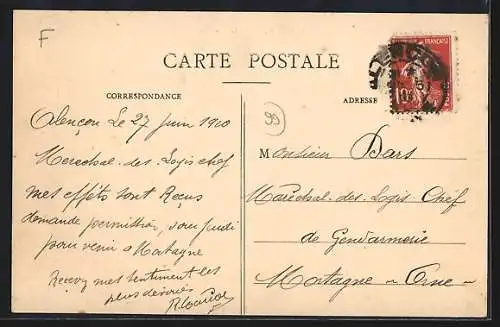 F
CARTE POSTALE
CORRESPONDANCE
ADRESSE
FRANÇAISE
10c
Alençon Le 27 Juin 1910
Marechal-des-Logis chef
mes effêts sont Reçus
demande permission, pour Jeudi
pour venir a Mortagne
Recevez mes sentiment les
plus dévoués
99
Monsieur Dars
Maréchal-des-Logis Chef
de Gendarmerie
Mortagne - Orne -